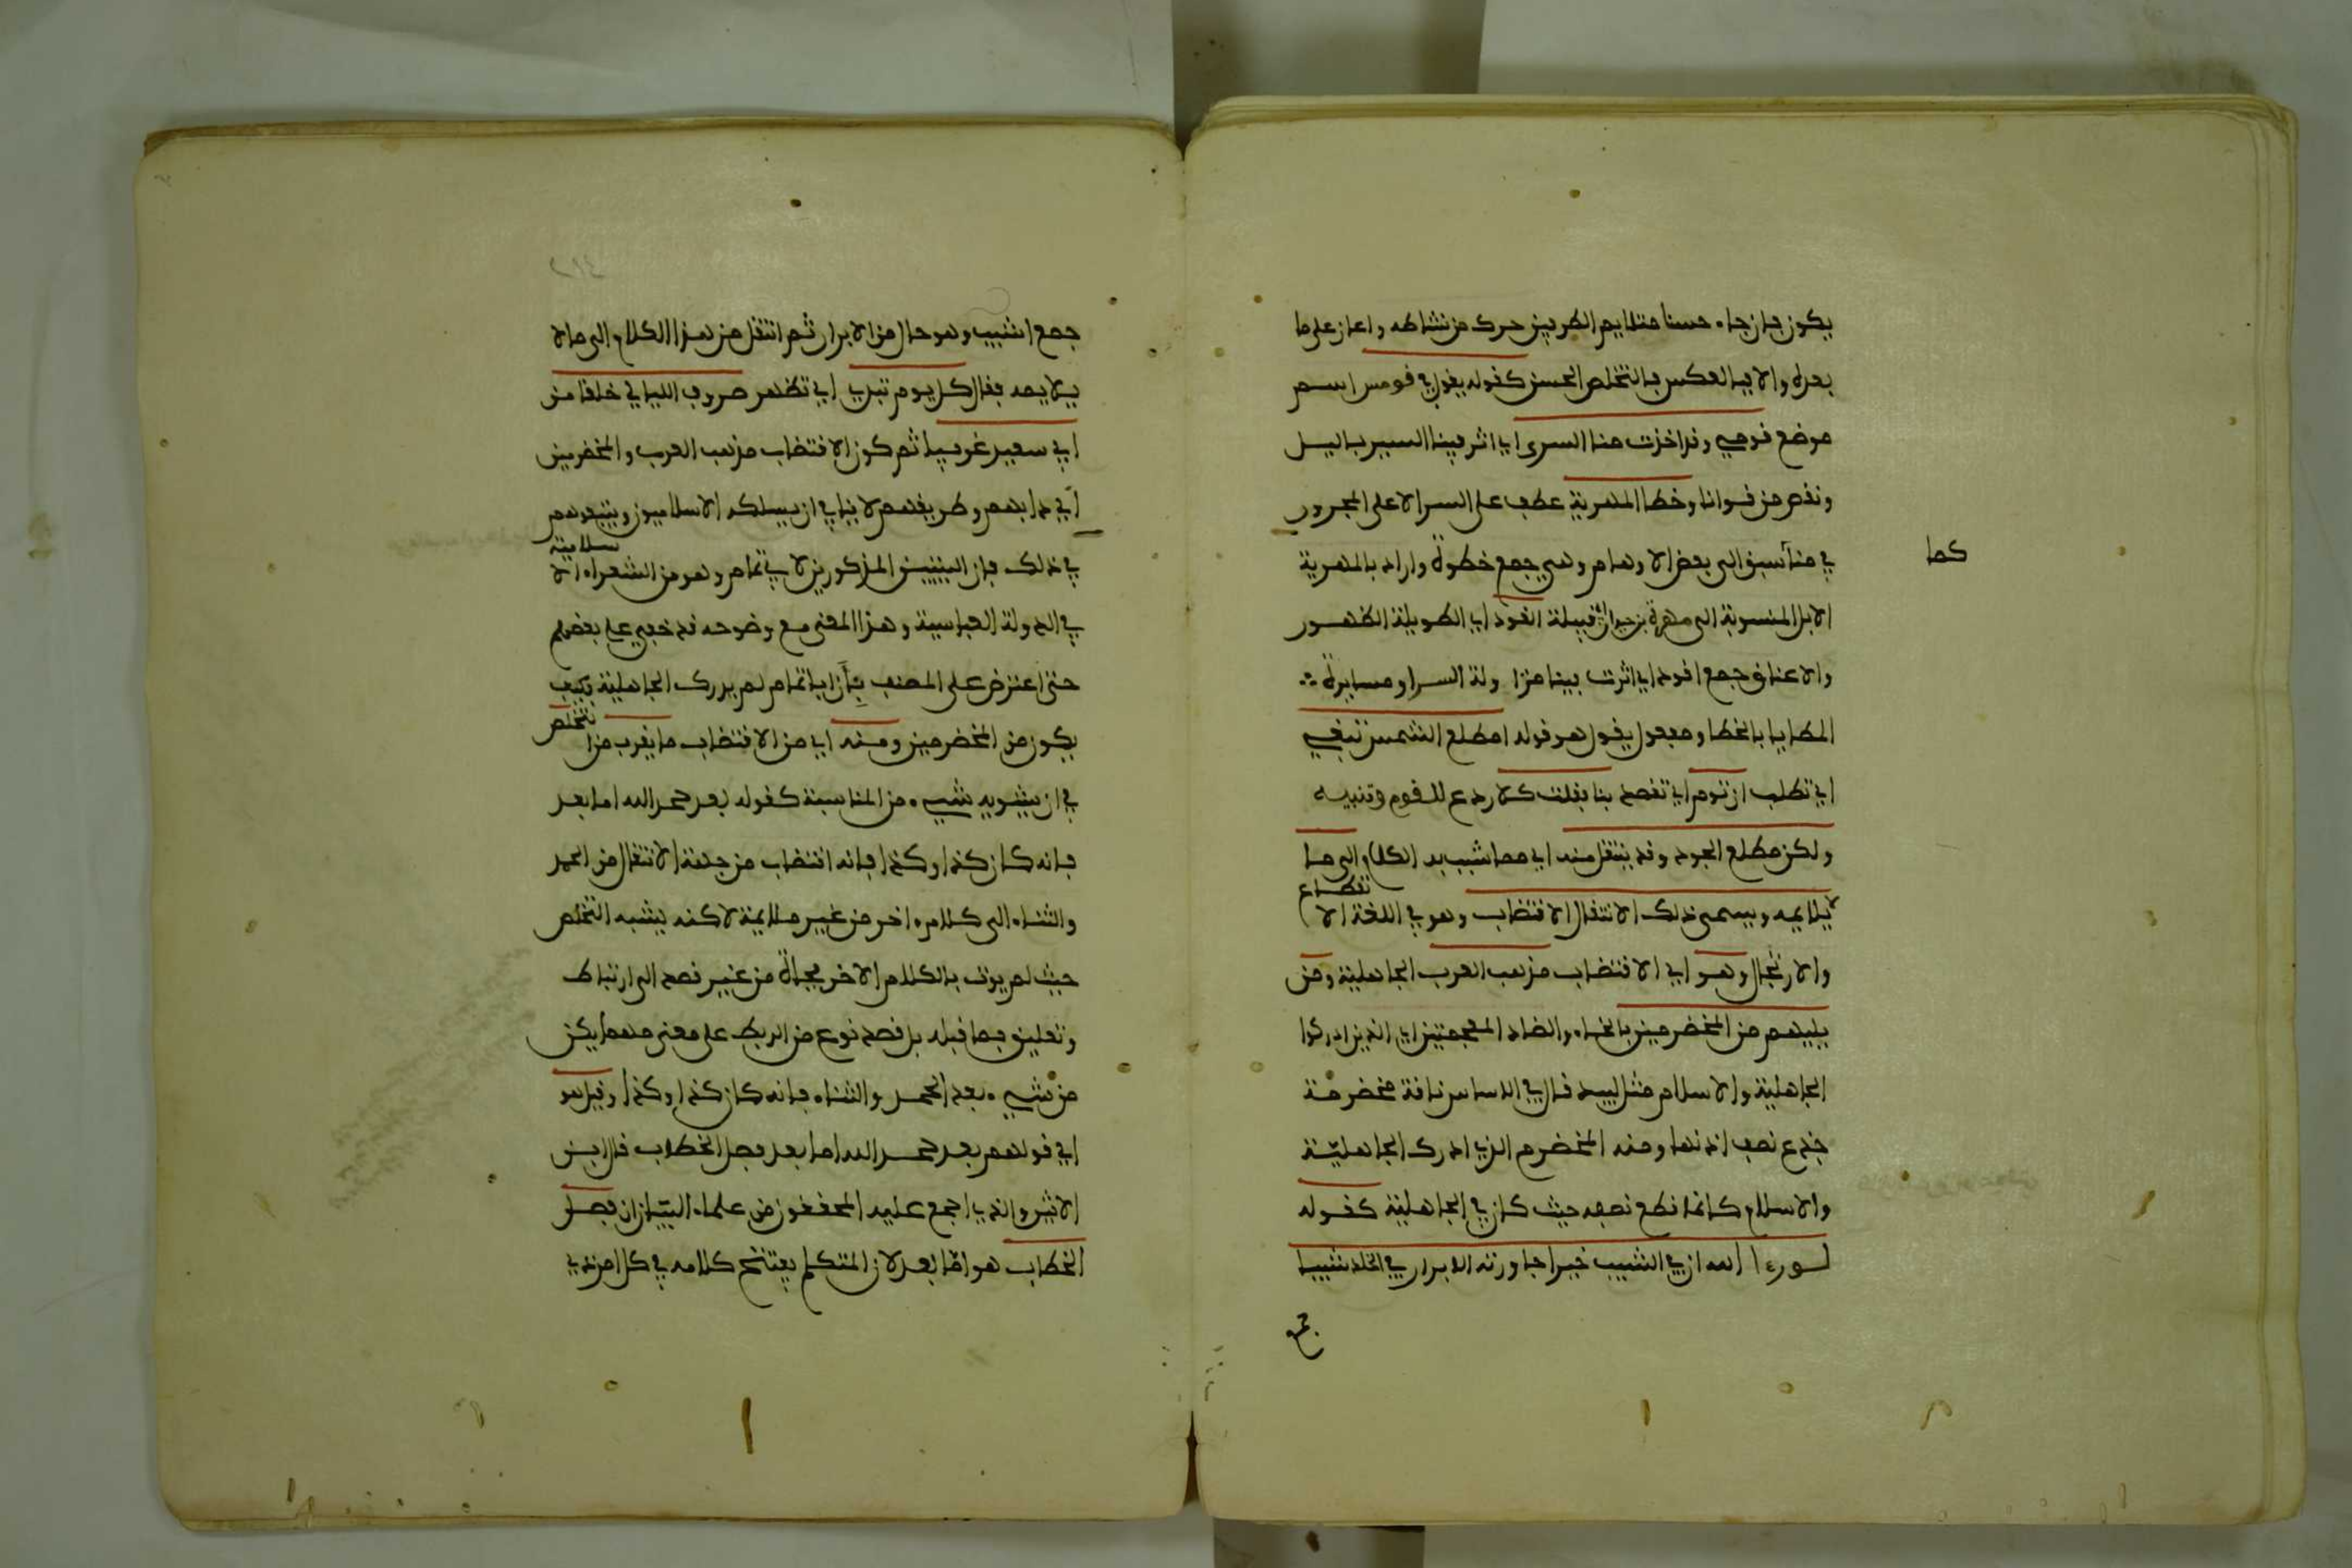 يكون فان جاء حسنا متلايم الطرفين حرك من نشاطه واعان على ما
بعده والا فبالعكس فالتخلص الحسن كقوله يقول في قومس اسم
موضع قومي وقد اخذت منا السرى اي اثر فينا السير باليل
ونقص من قوانا وخطا المهرية عطف على السرا لا على المجرور
في منا كما سبق الى بعض الاوهام وهي جمع خطوة واراد بالمهرية
الابل المنسوبة الى مهرة بن حيدان قبيلة القود اي الطويلة الظهور
والاعناق جمع اقود اي اثرت فينا مزاولة السرا ومسايرة
المطايا بالخطا ومفعول يقول هو قوله امطلع الشمس تبغي
اي تطلب ان تؤم اي تقصد بنا فقلت كلا ردع للقوم وتنبيه
ولكن مطلع الجود وقد ينتقل منه اي مما شبب به الكلام الى ما
لا يلايمه ويسمى ذلك الانتقال الاقتضاب وهو في اللغة الاقتطاع
والارتجال وهو اي الاقتضاب مذهب العرب الجاهلية ومن
يليهم من المخضرمين بالخاء والضاد المعجمتين اي الذين ادركوا
الجاهلية والاسلام مثل لبيد قال في الاساس ناقة مخضرمة
جذع نصف اذنها ومنه المخضرم الذي ادرك الجاهلية
والاسلام كانما قطع نصفه حيث كان في الجاهلية كقوله
لو رءا الله ان في الشيب خيرا جاورته الابرار في الخلد شيبا
جمع
جمع اشيب وهو حال من الابرار ثم انتقل من هذا الكلام الى ما لا
يلايمه فقال كل يوم تبدي اي تظهر صروف الليالي خلقا من
ابي سعيد غريبا ثم كون الاقتضاب مذهب العرب والمخضرمين
اي دابهم وطريقهم لا ينافي ان يسلكه الاسلاميون ويتبعوهم
في ذلك فان البيتين المذكورين لابي تمام وهو من الشعراء الاسلامية
في الدولة العباسية وهذا المعنى مع وضوحه قد خفي على بعضهم
حتى اعترض على المصنف بأن ابا تمام لم يدرك الجاهلية فكيف
يكون من المخضرمين ومنه اي من الاقتضاب ما يقرب من التخلص
في ان يشوبه شيء من المناسبة كقوله بعد حمد الله اما بعد
فانه كان كذا وكذا فانه اقتضاب من جهة الانتقال من الحمد
والثناء الى كلام ءاخر من غير ملايمة لاكنه يشبه التخلص
حيث لم يوت بالكلام الاخر فجأة من غير قصد الى ارتباط
وتعليق بما قبله بل قصد نوع من الربط على معنى مهما يكن
من شيء بعد الحمد والثناء فانه كان كذا وكذا وقيل هو
اي قولهم بعد حمد الله اما بعد فصل الخطاب قال ابن
الاثير والذي اجمع عليه المحققون من علماء البيان ان فصل
الخطاب هو اما بعد لان المتكلم يفتتح كلامه في كل امر ذي